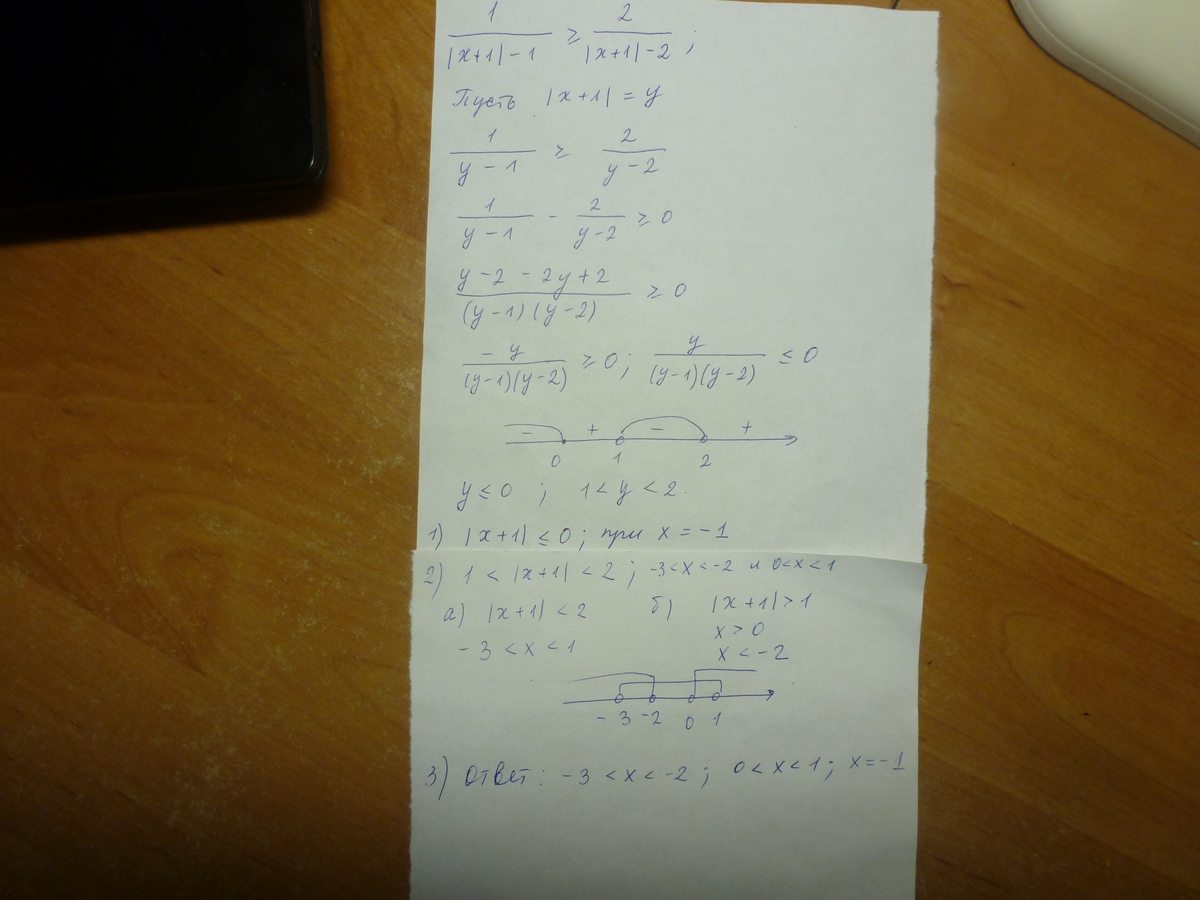 1/(|x+1|-1) ≥ 2/(|x+1|-2) ;
Пусть |x+1| = y
1/(y-1) ≥ 2/(y-2)
1/(y-1) - 2/(y-2) ≥ 0
(y-2-2y+2)/((y-1)(y-2)) ≥ 0
-y/((y-1)(y-2)) ≥ 0 ; y/((y-1)(y-2)) ≤ 0
- + - +
0 1 2
y ≤ 0 ; 1 < y < 2.
1) |x+1| ≤ 0 ; при x = -1
2) 1 < |x+1| < 2 ; -3<x<-2 и 0<x<1
а) |x+1| < 2 б) |x+1| > 1
-3 < x < 1 x > 0
x < -2
-3 -2 0 1
3) Ответ: -3 < x < -2 ; 0 < x < 1 ; x = -1